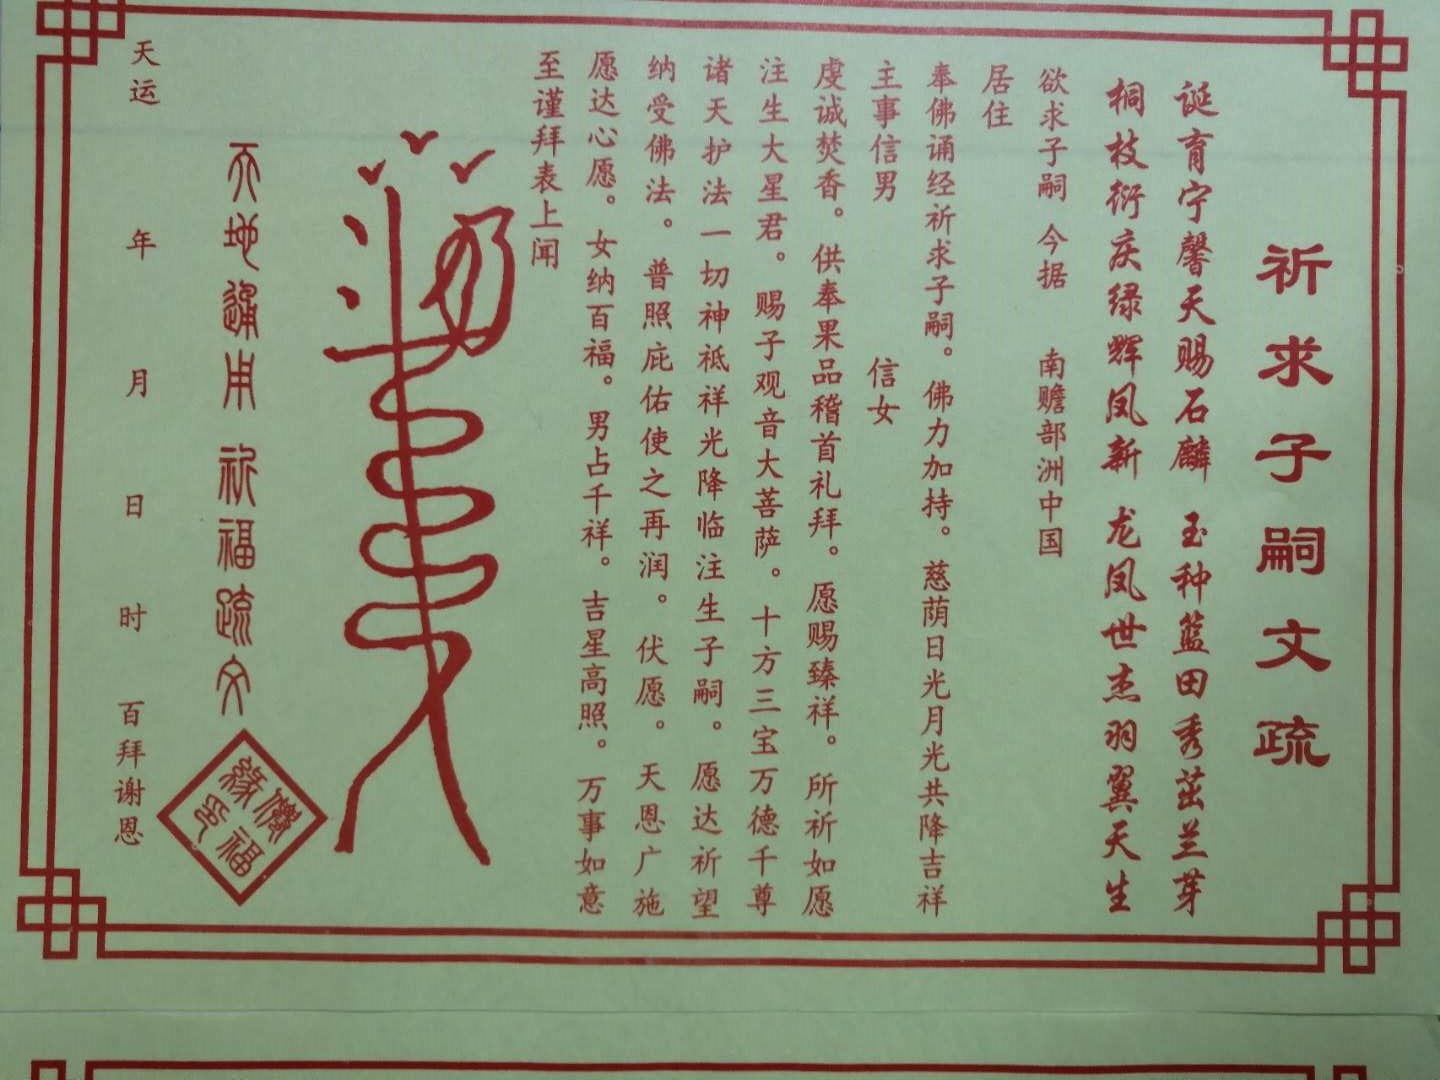 祈求子嗣文疏
诞育宁馨天赐石麟 玉种蓝田秀茁兰芽
桐枝衍庆绿辉凤新 龙凤世杰羽翼天生
欲求子嗣 今据 南赡部洲中国
居住
奉佛诵经祈求子嗣。佛力加持。慈荫日光月光共降吉祥
主事信男 信女
虔诚焚香。供奉果品稽首礼拜。愿赐臻祥。所祈如愿
注生大星君。赐子观音大菩萨。十方三宝万德千尊
诸天护法一切神祗祥光降临注生子嗣。愿达祈望
纳受佛法。普照庇佑使之再润。伏愿。天恩广施
愿达心愿。女纳百福。男占千祥。吉星高照。万事如意
至谨拜表上闻
天地通用 祈福疏文
天运 年 月 日 时 百拜谢恩